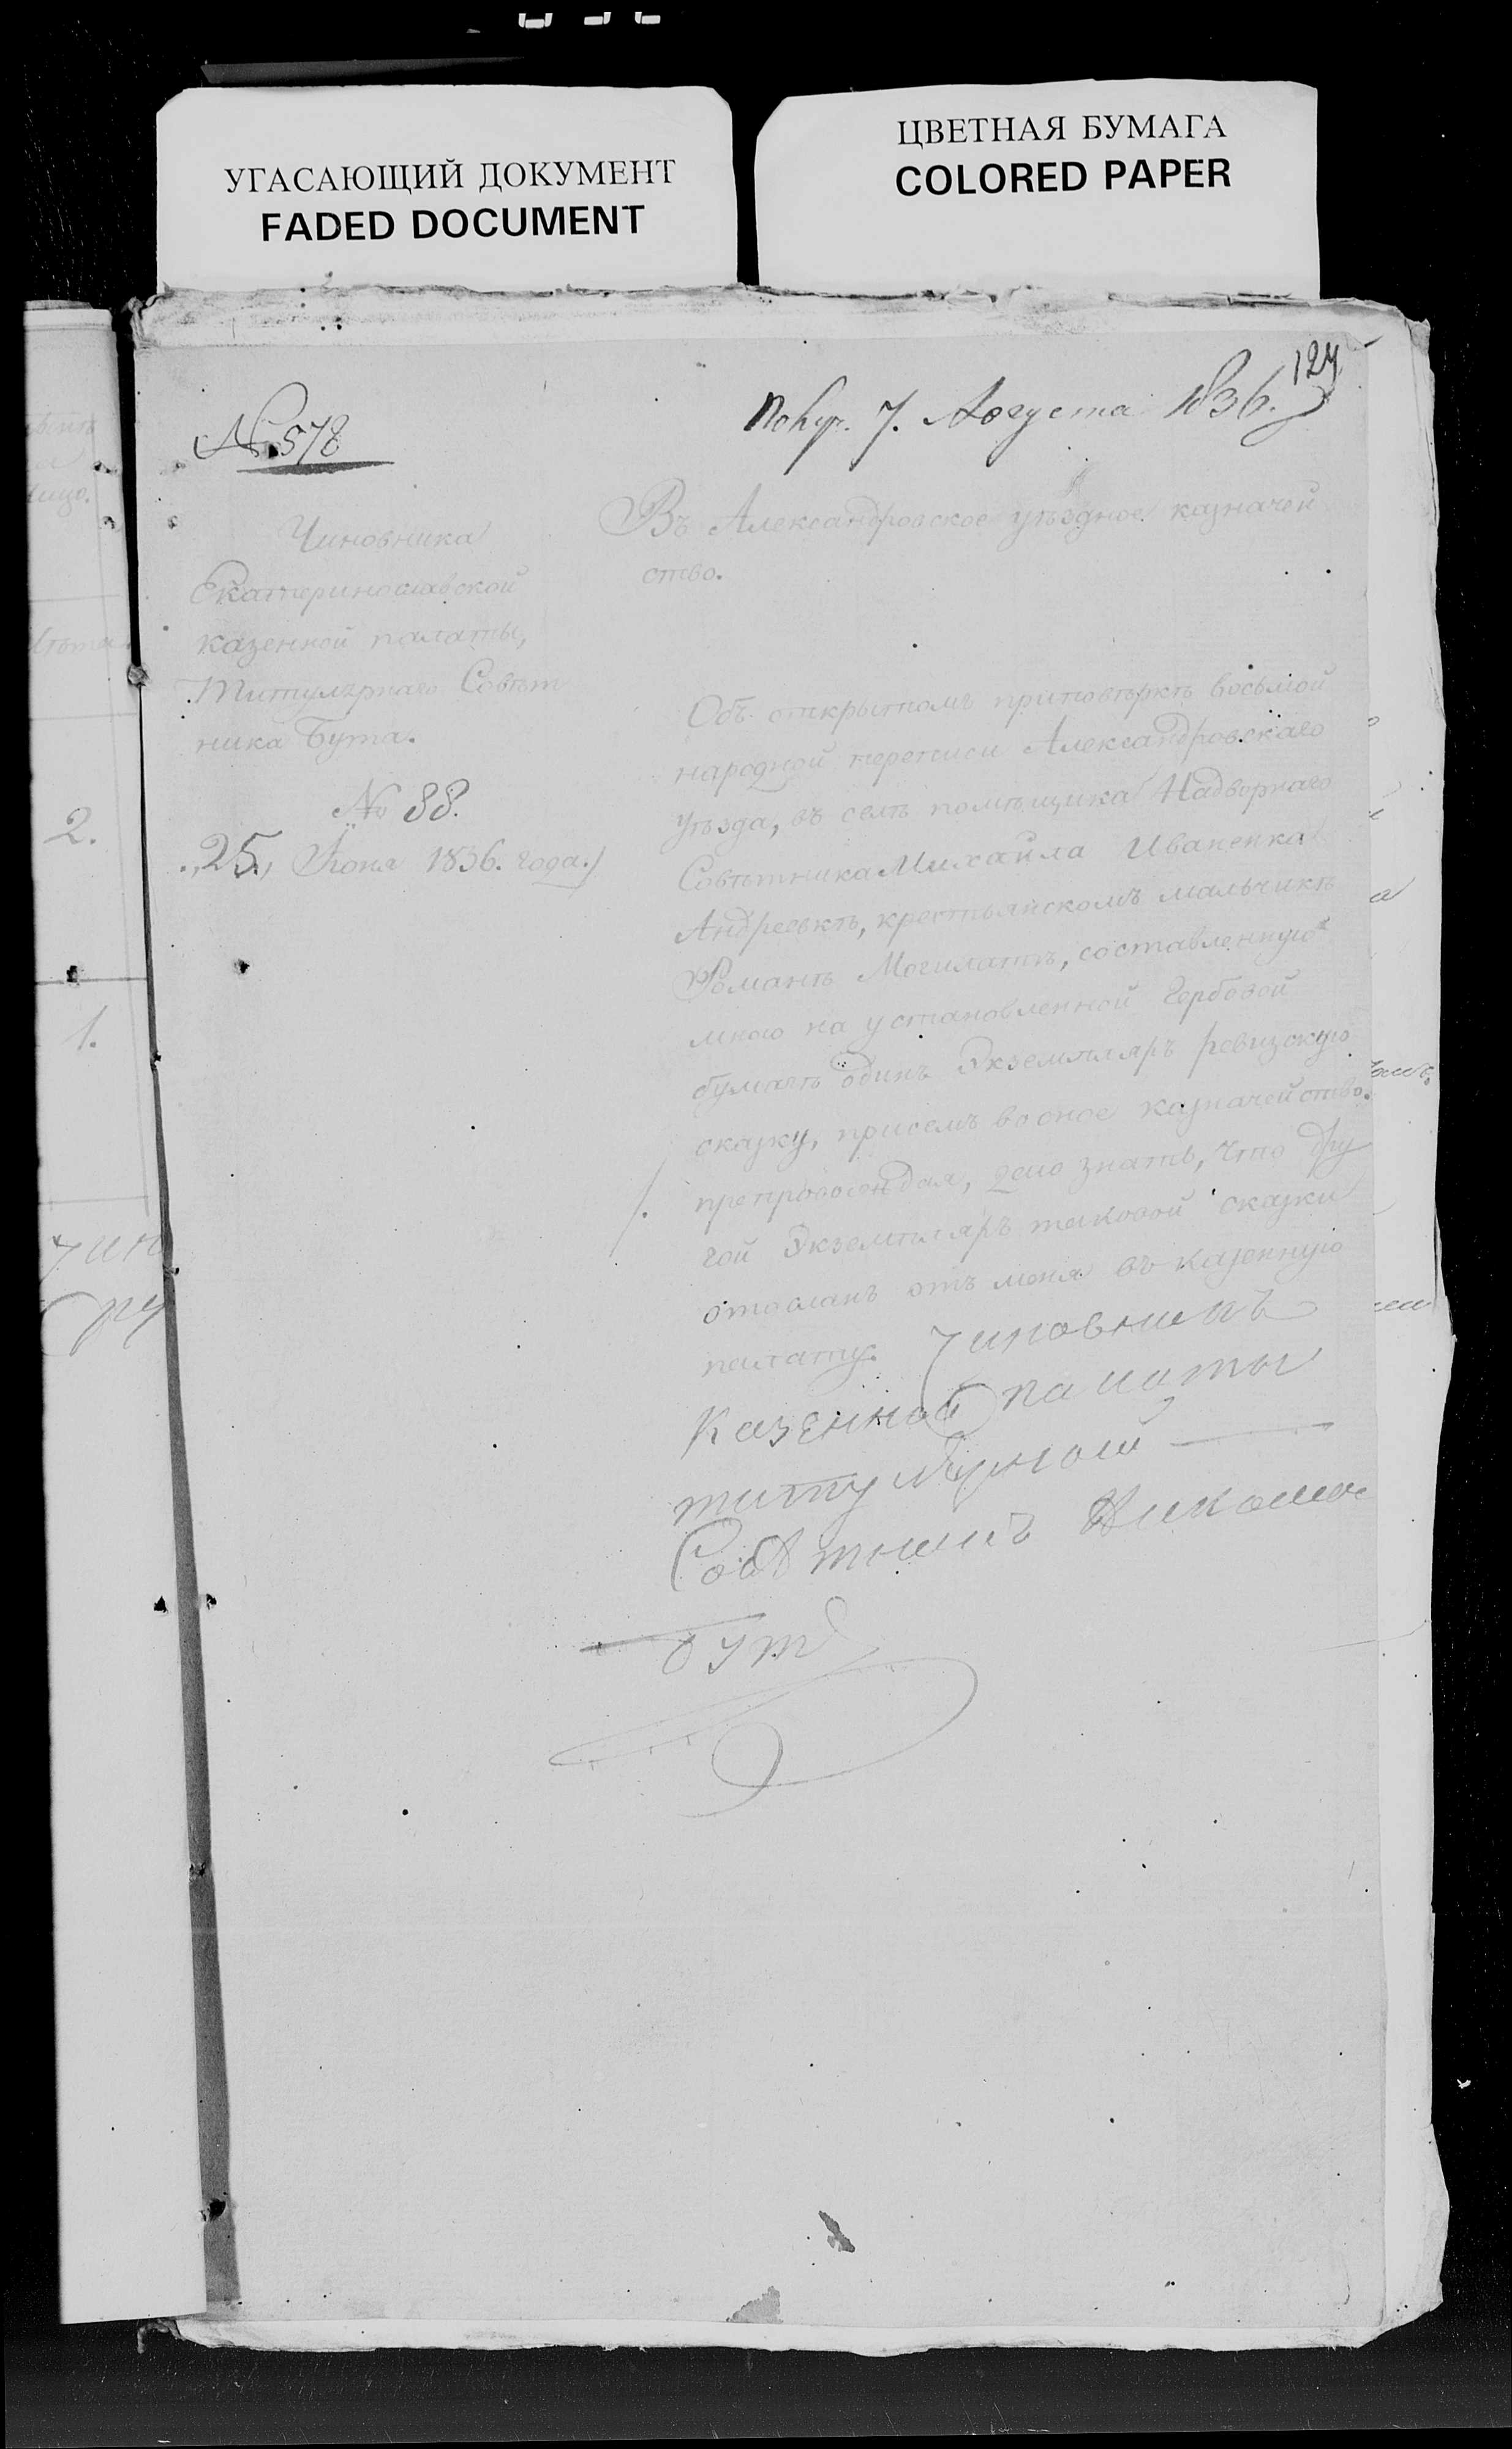 УГАСАЮЩИЙ ДОКУМЕНТ
FADED DOCUMENT
ЦВЕТНАЯ БУМАГА
COLORED PAPER
124
№ 578
Получ. 7. Августа 1836.
Чиновника
Екатеринославской
казенной палаты,
Титулярнаго Совѣт
ника Бута.
№ 88.
„25„ Июня 1836. года.
Въ Александровское уѣздное казначей
ство.
Объ открытомъ приповѣркѣ восьмой
народной переписи Александровскаго
уѣзда, въ селѣ помѣщика Надворнаго
Совѣтника Михайла Иваненка
Андреевкѣ, крестьянскомъ мальчикѣ
Романѣ Могилатѣ, составленную
мною на установленной гербовой
бумагѣ одинъ Экземпляръ ревизскую
сказку, присемъ вооное казначейство
препровождая, даю знать, что дру
гой Экземпляръ таковой сказки
отосланъ отъ меня въ казенную
палату. Чиновникъ
казенной палаты
титулярной
Совѣтникъ Николай
Бутъ
2.
1.
чин